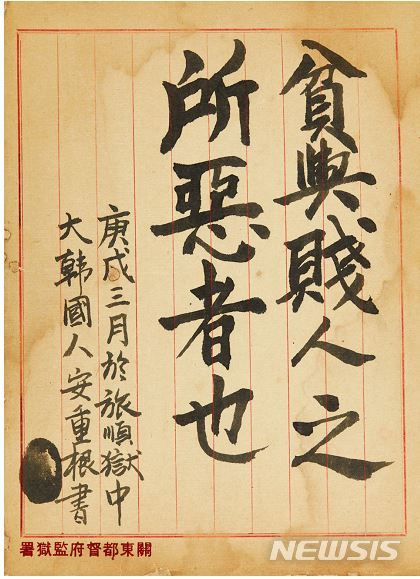 貧與賤人之
所惡者也
庚戌三月於旅順獄中
大韓國人安重根書
關東都督府監獄署
NEWSIS